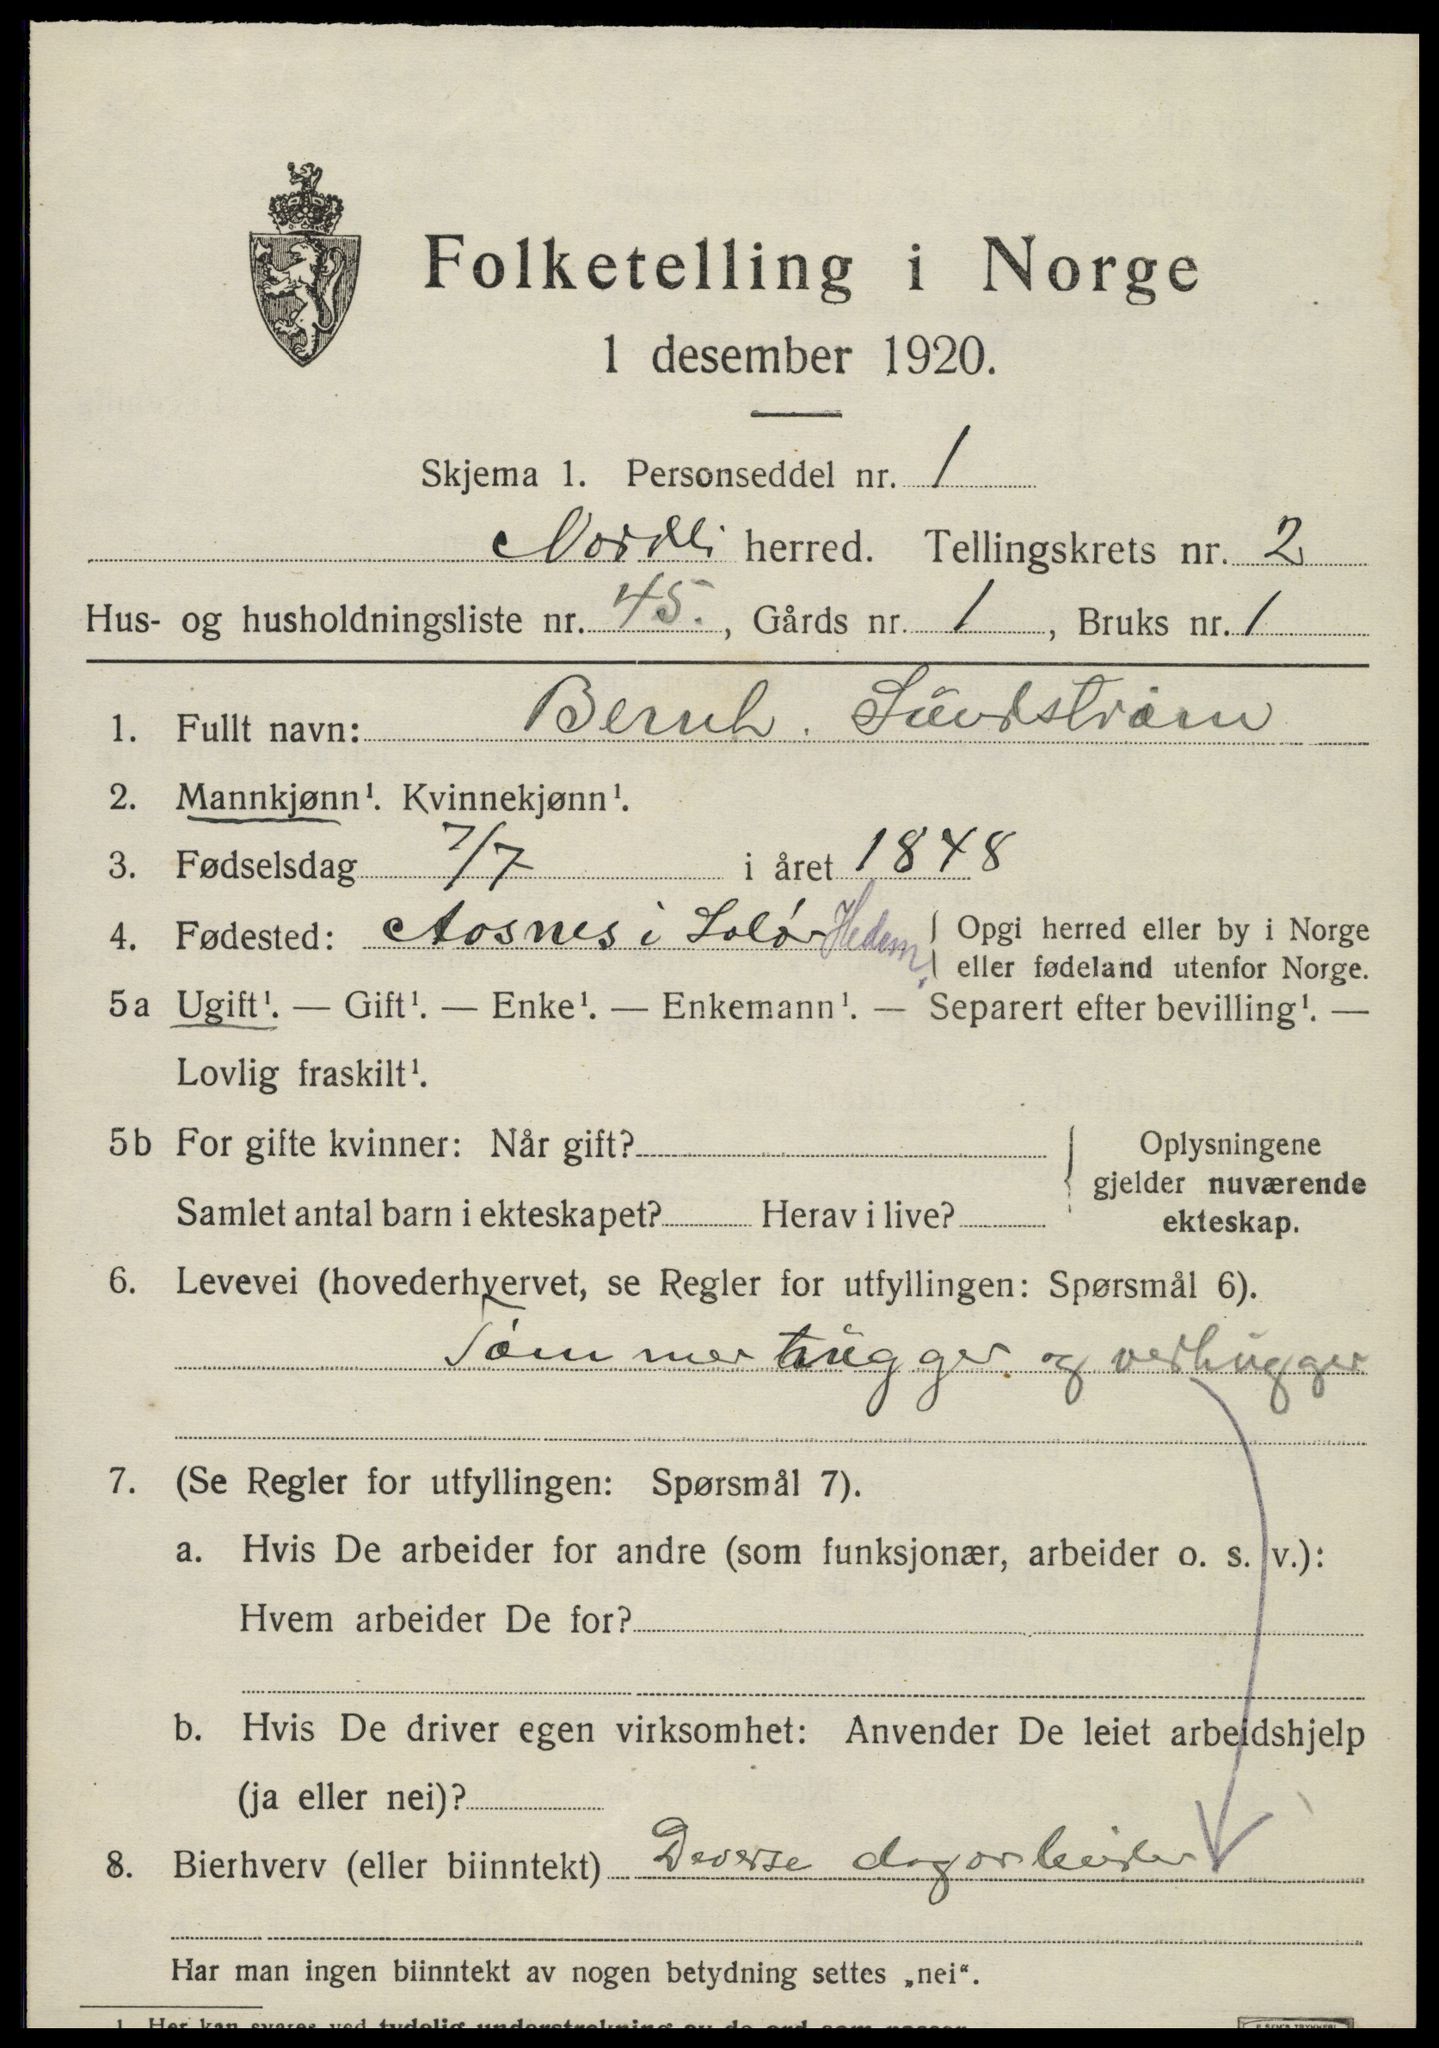 Folketelling i Norge
1 desember 1920.
Skjema 1. Personseddel nr. 1
Nordli herred. Tellingskrets nr. 2
Hus- og husholdningsliste nr. 45., Gårds nr. 1, Bruks nr. 1
1. Fullt navn: Bernh. Sundstrøm
2. Mannkjønn¹. Kvinnekjønn¹.
3. Fødselsdag 7/7 i året 1848
4. Fødested: Aosnes i Solør Hedem. { Opgi herred eller by i Norge
eller fødeland utenfor Norge.
5a Ugift¹. — Gift¹. — Enke¹. — Enkemann¹. — Separert efter bevilling¹. —
Lovlig fraskilt¹.
5b For gifte kvinner: Når gift? { Oplysningene
gjelder nuværende
Samlet antal barn i ekteskapet? Herav i live? ekteskap.
6. Levevei (hovederhvervet, se Regler for utfyllingen: Spørsmål 6).
Tømmerhugger og vedhugger
7. (Se Regler for utfyllingen: Spørsmål 7).
a. Hvis De arbeider for andre (som funksjonær, arbeider o. s. v.):
Hvem arbeider De for?
b. Hvis De driver egen virksomhet: Anvender De leiet arbeidshjelp
(ja eller nei)?
8. Bierhverv (eller biinntekt) Deverse dagarbeider
Har man ingen biinntekt av nogen betydning settes „nei“.
1 Her kan svares ved tydelig understrekning av de ord som passer.